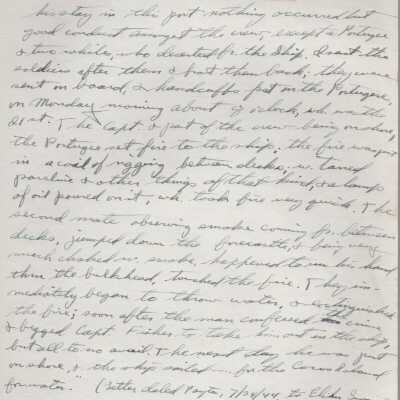 his stay in this port nothing occurred but
good conduct amongst the crew, except a Portugee
& two white, who deserted fr. the ship. I sent the
soldiers after them & brot them back; they were
sent on board, & handcuffs put on the Portugee,
on Monday morning about 9 o'clock, wh. was the
21st. The Capt. & part of the crew being on shore,
the Portugee set fire to the ship; the fire was put
in a coil of rigging between decks, w. tarred
parcline & other things of that kind, & a lamp
of oil poured on it, wh. took fire very quick. The
second mate observing smoke coming fr. between
decks, jumped down the forecastle, & being very
much choked w. smoke, happened to run his hand
thru the bulkhead, touched the fire. They im-
mediately began to throw water, & extinguished
the fire; soon after the man confessed the crime
& begged Capt. Fisher to take him out in the ship,
but all to no avail. The next day he was put
on shore, & the ship sailed for the
for water." (Letter dated 7/28/44 to